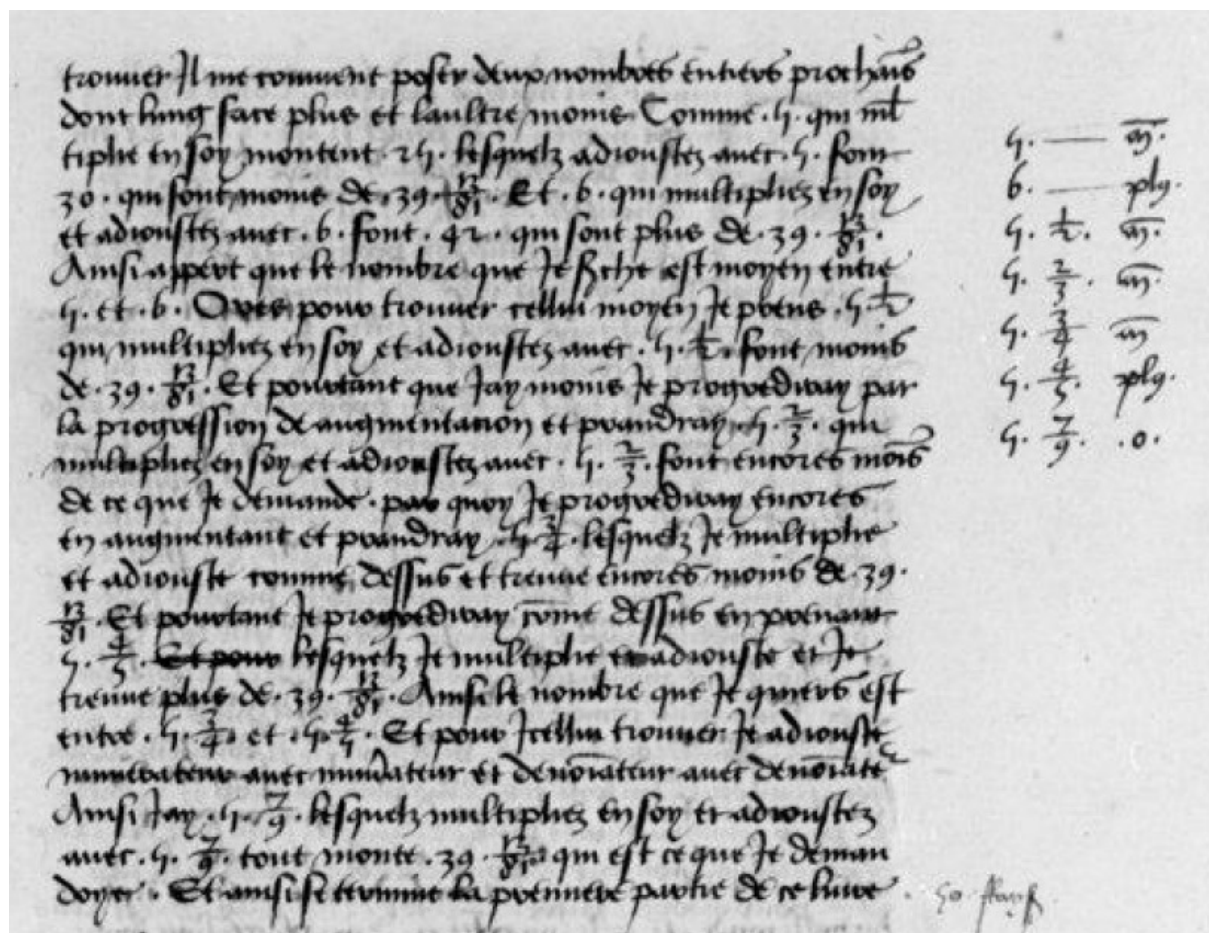 trouuer Il me conuient poser deux nombres entiers prochaīs
dont lung face plus et laultre moins Comme .5. qui ml̄
tiplie en soy montent .25. lesquelz adioustez auec .5. font
30. qui sont moins de .39. 13/81. Et .6. qui multipliez en soy
et adioustez auec .6. font .42. qui sont plus de .39. 13/81.
Ainsi appert que le nombre que Je serche est moyen entre
5. et .6. Ores pour trouuer cellui moyen Je prens .5. 1/2
qui multipliez en soy et adioustez auec .5. 1/2. font moins
de .39. 13/81. Et pourtant que Jay moins Je progrediray par
la progression de augmentacion et prandray .5. 2/3. qui
multipliez en soy et adioustez auec .5. 2/3. font encores moīs
de ce que Je demande. par quoy Je progrediray encores
en augmentant et prandray .5. 3/4. lesquelz Je multiplie
et adiouste comme dessus et treuue encores moins de .39.
13/81. Et pourtant Je progrediray cōme dessus en prenant
5. 4/5. Et pour lesquelz Je multiplie et adiouste et Je
treuue plus de .39. 13/81. Ainsi le nombre que Je quiers est
entre .5. 3/4. et .5. 4/5. Et pour Icellui trouuer Je adiouste
numerateur auec nūǝateur et denoīateur auec denoīateʳ
Ainsi Jay .5. 7/9. lesquelz multipliez en soy et adioustez
auec .5. 7/9. tout monte .39. 13/81. qui est ce que Je deman
doye. Et ainsi se termine la premiere partie de ce liure.
5. — m̄.
6. — plꝰ.
5. 1/2. m̄.
5. 2/3. m̄.
5. 3/4 m̄
5. 4/5. plꝰ.
5. 7/9 .0.